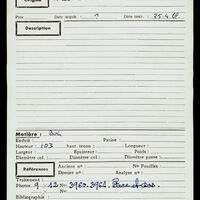 Origine
Prix : Date acquis : Date inscr. : 25.4.68
Description
Matière : Bois
Enduit : Patine :
Hauteur : 103 haut. totem : Longueur :
Largeur : Epaisseur : Poids :
Diamètre col. : Diamètre pied : Diamètre panse :
Références Ancien n° : N° Fouilles :
Dossier n° : Analyse n° :
Traitement :
Photos : 9 × 12 N° 3960. 3961. Face et dos.
Bibliographie :